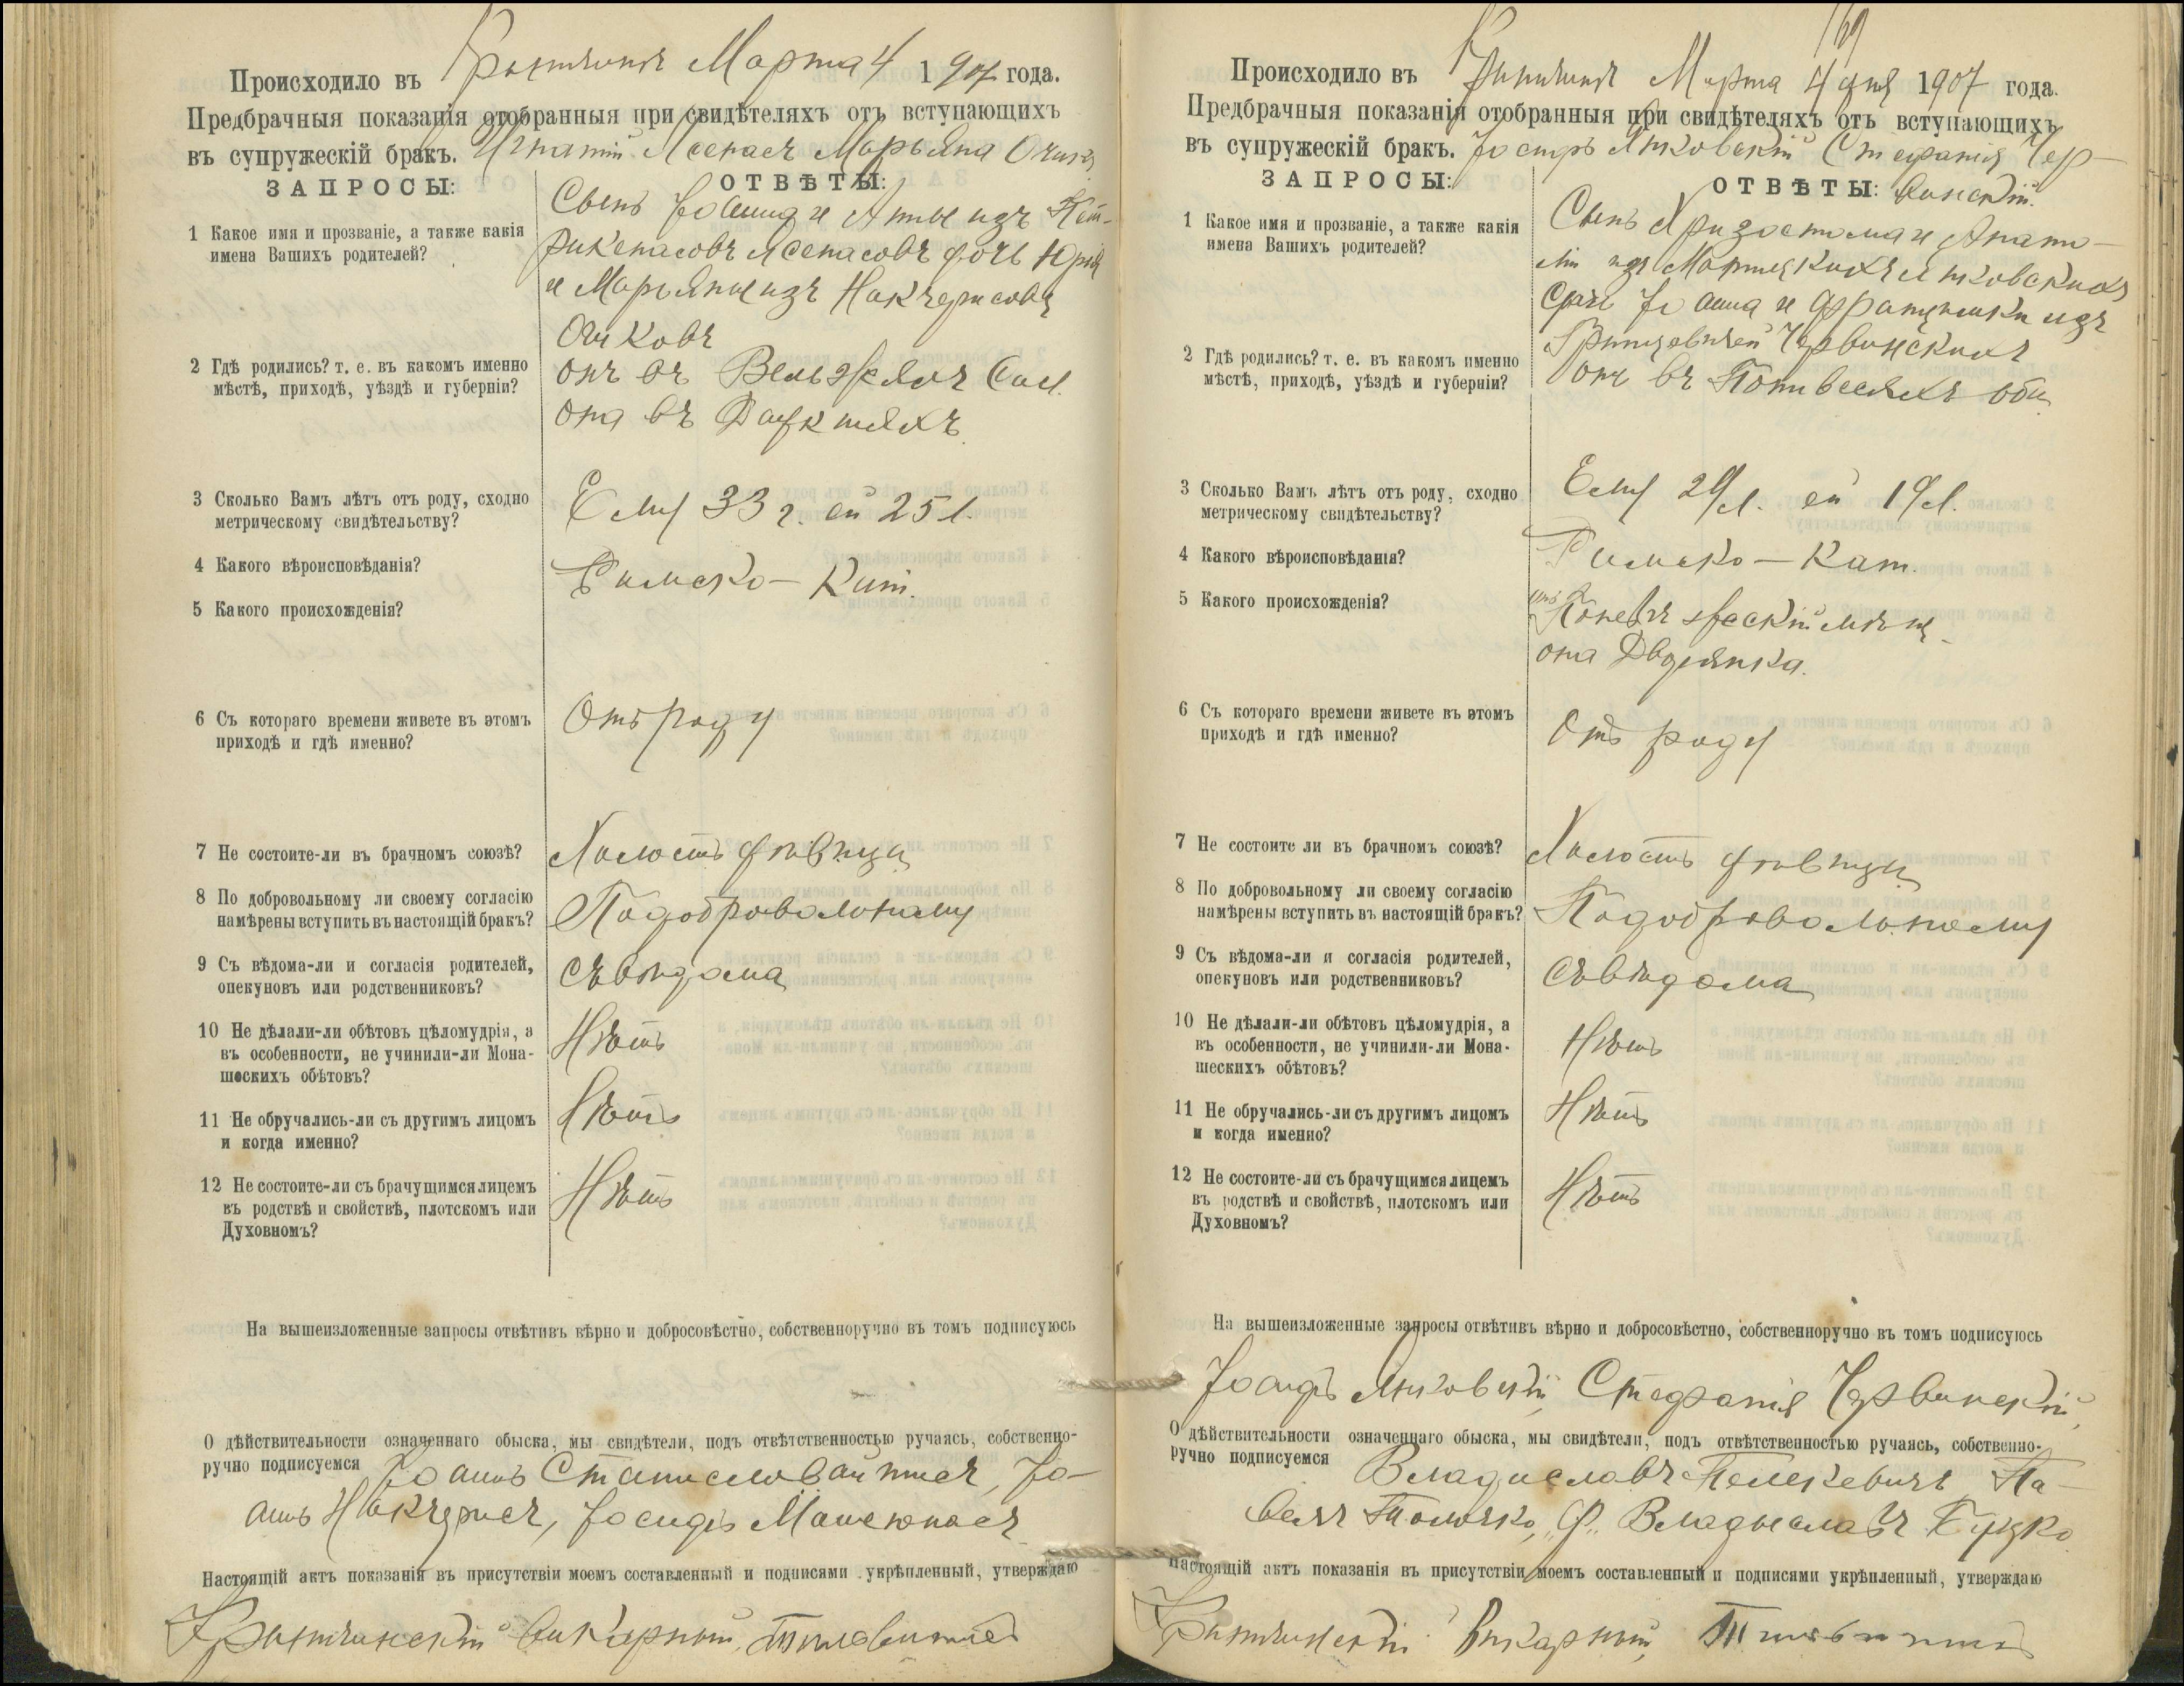 Происходило въ Марта 4 1907 года.
Предбрачныя показанія отобранныя при свидѣтеляхъ отъ вступающихъ
въ супружескій бракъ. Игнатій Марьяна
ЗАПРОСЫ:
ОТВѢТЫ:
1 Какое имя и прозваніе, а также какія
имена Вашихъ родителей?
Сынъ Іоанна и Анны изъ
дочь Юрія
и Марьяны изъ
2 Гдѣ родились? т. е. въ какомъ именно
мѣстѣ, приходѣ, уѣздѣ и губерніи?
онъ въ
она въ
3 Сколько Вамъ лѣтъ отъ роду, сходно
метрическому свидѣтельству?
Ему 33 г. ей 25 л.
4 Какого вѣроисповѣданія?
Римско-Кат.
5 Какого происхожденія?
6 Съ котораго времени живете въ этомъ
приходѣ и гдѣ именно?
Отъ роду
7 Не состоите-ли въ брачномъ союзѣ?
Холостъ дѣвица
8 По добровольному ли своему согласію
намѣрены вступить въ настоящій бракъ?
По добровольному
9 Съ вѣдома-ли и согласія родителей,
опекуновъ или родственниковъ?
Съ вѣдома
10 Не дѣлали-ли обѣтовъ цѣломудрія, а
въ особенности, не учинили-ли Мона-
шескихъ обѣтовъ?
Нѣтъ
11 Не обручались-ли съ другимъ лицомъ
и когда именно?
Нѣтъ
12 Не состоите-ли съ брачущимся лицемъ
въ родствѣ и свойствѣ, плотскомъ или
Духовномъ?
Нѣтъ
На вышеизложенные запросы отвѣтивъ вѣрно и добросовѣстно, собственноручно въ томъ подписуюсь
О дѣйствительности означеннаго обыска, мы свидѣтели, подъ отвѣтственностью ручаясь, собственно-
ручно подписуемся Іоаннъ Іо-
аннъ Іосифъ
Настоящій актъ показанія въ присутствіи моемъ составленный и подписями укрѣпленный, утверждаю
викарный
169
Происходило въ Марта 4 дня 1907 года.
Предбрачныя показанія отобранныя при свидѣтеляхъ отъ вступающихъ
въ супружескій бракъ. Іосифъ Стефанія Чер-
ЗАПРОСЫ:
ОТВѢТЫ: винскій
1 Какое имя и прозваніе, а также какія
имена Вашихъ родителей?
Сынъ Хризостома и Анато-
ліи изъ
дочь Іоанна и Францишки изъ
Червинскихъ
2 Гдѣ родились? т. е. въ какомъ именно
мѣстѣ, приходѣ, уѣздѣ и губерніи?
онъ въ оба
3 Сколько Вамъ лѣтъ отъ роду, сходно
метрическому свидѣтельству?
Ему 29 л. ей 19 л.
4 Какого вѣроисповѣданія?
Римско-Кат.
5 Какого происхожденія?
онъ
она Дворянка.
6 Съ котораго времени живете въ этомъ
приходѣ и гдѣ именно?
Отъ роду
7 Не состоите ли въ брачномъ союзѣ?
Холостъ дѣвица
8 По добровольному ли своему согласію
намѣрены вступить въ настоящій бракъ?
По добровольному
9 Съ вѣдома-ли и согласія родителей,
опекуновъ или родственниковъ?
Съ вѣдома
10 Не дѣлали-ли обѣтовъ цѣломудрія, а
въ особенности, не учинили-ли Мона-
шескихъ обѣтовъ?
Нѣтъ
11 Не обручались-ли съ другимъ лицомъ
и когда именно?
Нѣтъ
12 Не состоите-ли съ брачущимся лицемъ
въ родствѣ и свойствѣ, плотскомъ или
Духовномъ?
Нѣтъ
На вышеизложенные запросы отвѣтивъ вѣрно и добросовѣстно, собственноручно въ томъ подписуюсь
Іосифъ Стефанія Червинскій
О дѣйствительности означеннаго обыска, мы свидѣтели, подъ отвѣтственностью ручаясь, собственно-
ручно подписуемся Владиславъ Па-
велъ Владыславъ
Настоящій актъ показанія въ присутствіи моемъ составленный и подписями укрѣпленный, утверждаю
Викарный